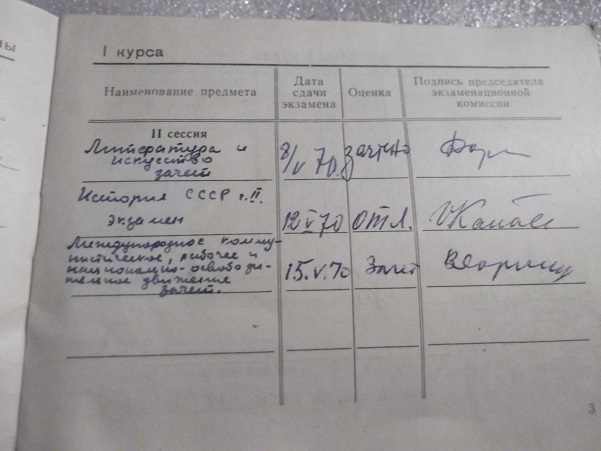 ны
I курса
Наименование предмета
Дата
сдачи
экзамена
Оценка
Подпись председателя
экзаменационной
комиссии
II сессия
Литература и
искусство
зачет
8/V 70
зачтено
История СССР ч. II.
экзамен
12 V 70
отл.
Международное комму-
нистическое, рабочее и
национально-освободи-
тельное движение
зачет.
15.V.70
Зачет
3